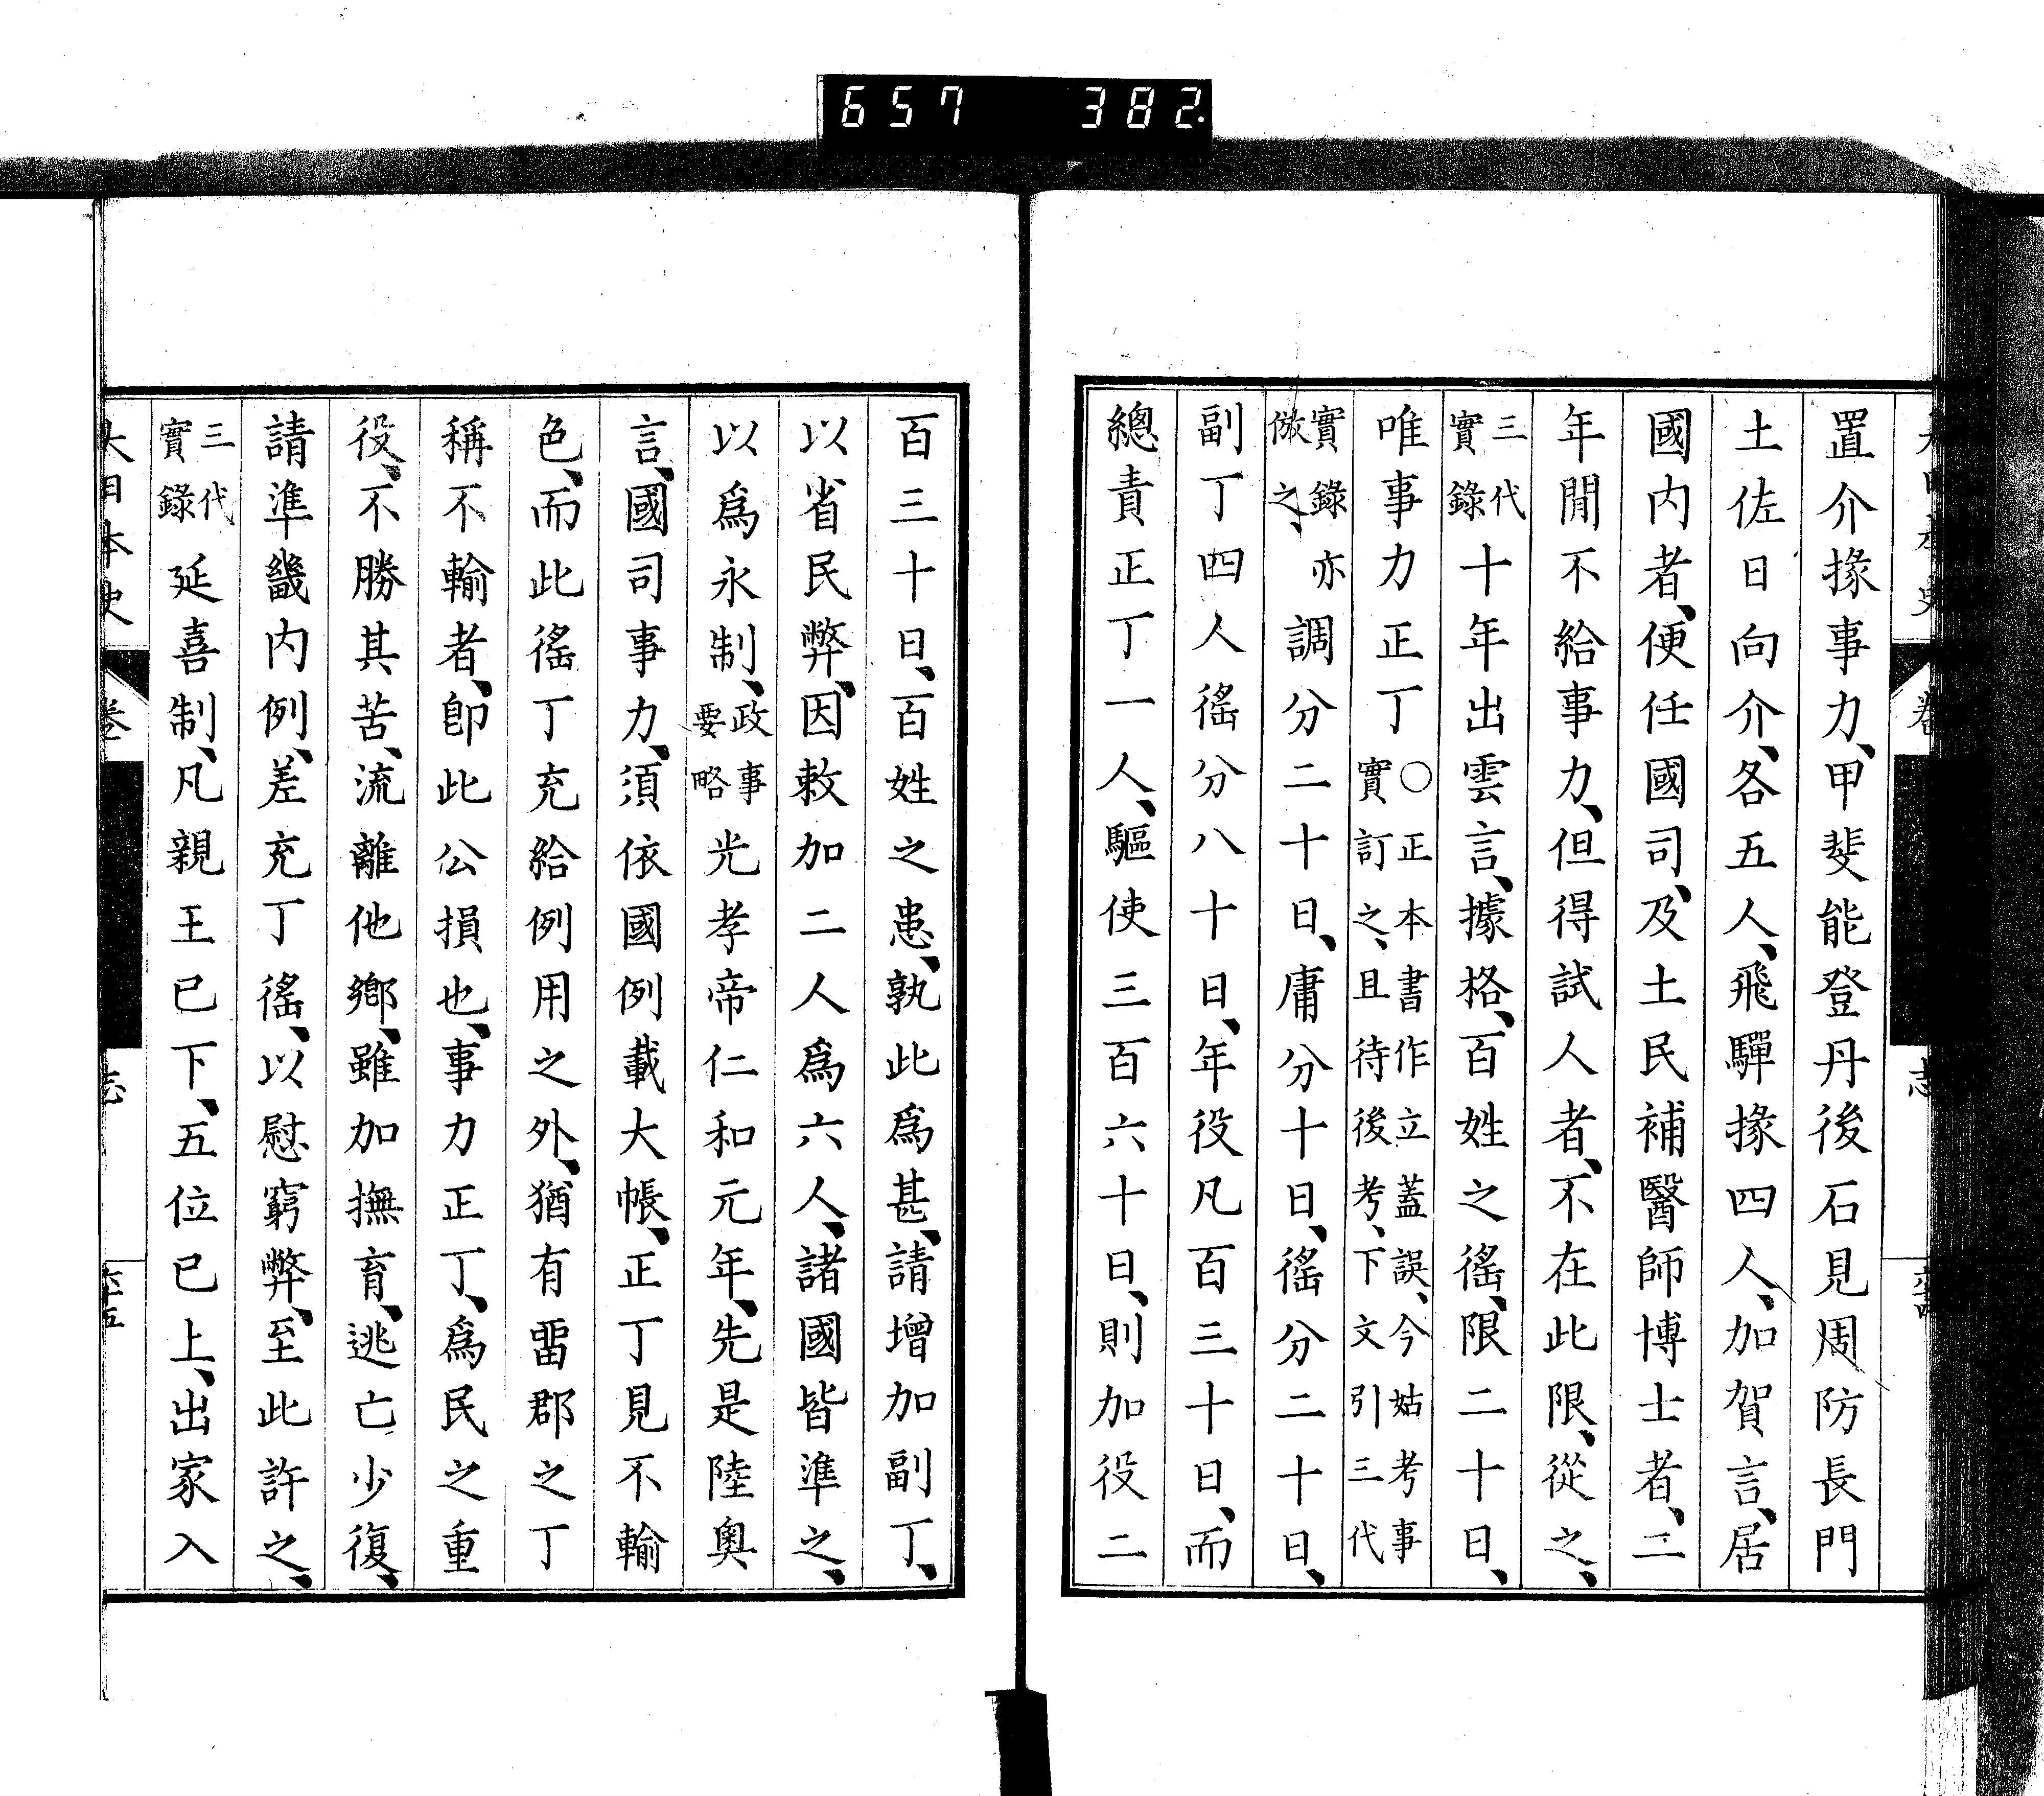 657 382
置介掾事力、甲斐能登丹後石見周防長門
土佐日向介、各五人、飛驒掾四人、加賀言、居
國内者、便任國司、及土民補醫師博士者、二
年閒不給事力、但得試人者、不在此限、從之、
三代實錄十年出雲言、據格、百姓之徭、限二十日、
唯事力正丁○正本書作立蓋誤、今姑考事實訂之、且待後考、下文引三代
實錄亦倣之、調分二十日、庸分十日、徭分二十日、
副丁四人徭分八十日、年役凡百三十日、而
總責正丁一人、驅使三百六十日、則加役二
百三十日、百姓之患、孰此爲甚、請增加副丁、
以省民弊、因敕加二人爲六人、諸國皆準之、
以爲永制、政事要略光孝帝仁和元年、先是陸奧
言、國司事力、須依國例載大帳、正丁見不輸
色、而此徭丁充給例用之外、猶有畱郡之丁
稱不輸者、卽此公損也、事力正丁、爲民之重
役、不勝其苦、流離他鄉、雖加撫育、逃亡少復、
請準畿内例、差充丁徭、以慰窮弊、至此許之、
三代實錄延喜制、凡親王已下、五位已上、出家入
大日本史 卷 志 六十五